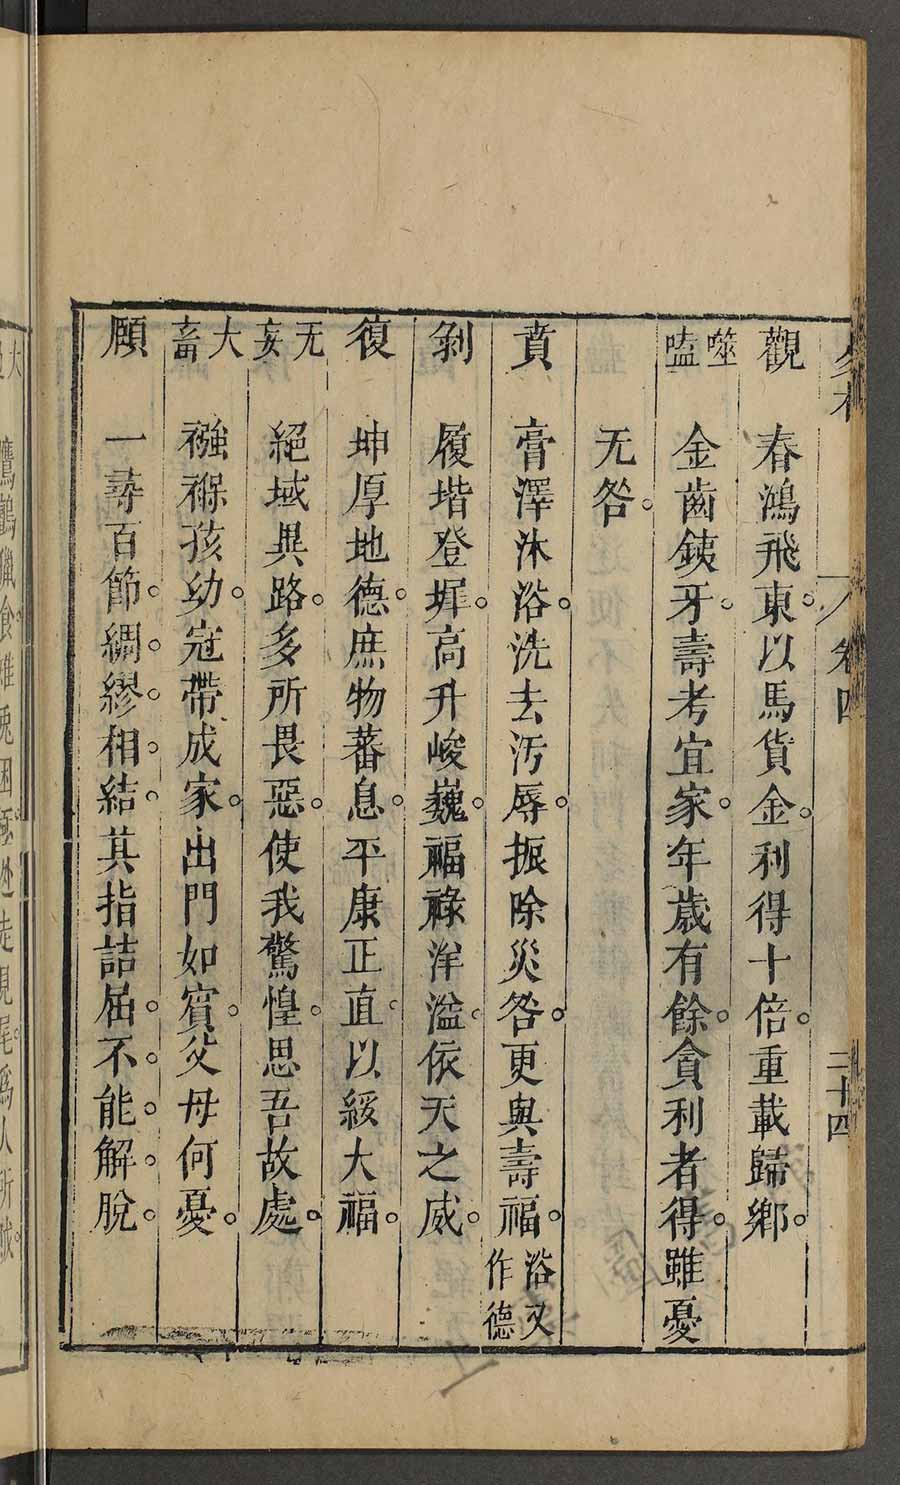 卷四
二十四
觀　春鴻飛東。以馬貨金。利得十倍。重載歸鄉。
噬嗑　金齒鉄牙。壽考宜家。年歲有餘。貪利者得。雖憂
无咎。
賁　膏澤沐浴。洗去汚辱。振除災咎。更與壽福。浴又作德
剝　履堦登墀。高升峻巍。福祿洋溢。依天之威。
復　坤厚地德。庶物蕃息。平康正直。以綏大福。
无妄　絕域異路。多所畏惡。使我驚惶。思吾故處。
大畜　襁褓孩幼。冠帶成家。出門如賓。父母何憂。
頤　一尋百節。綢。繆。相。結。其指詰屈。不。能。解。脫。